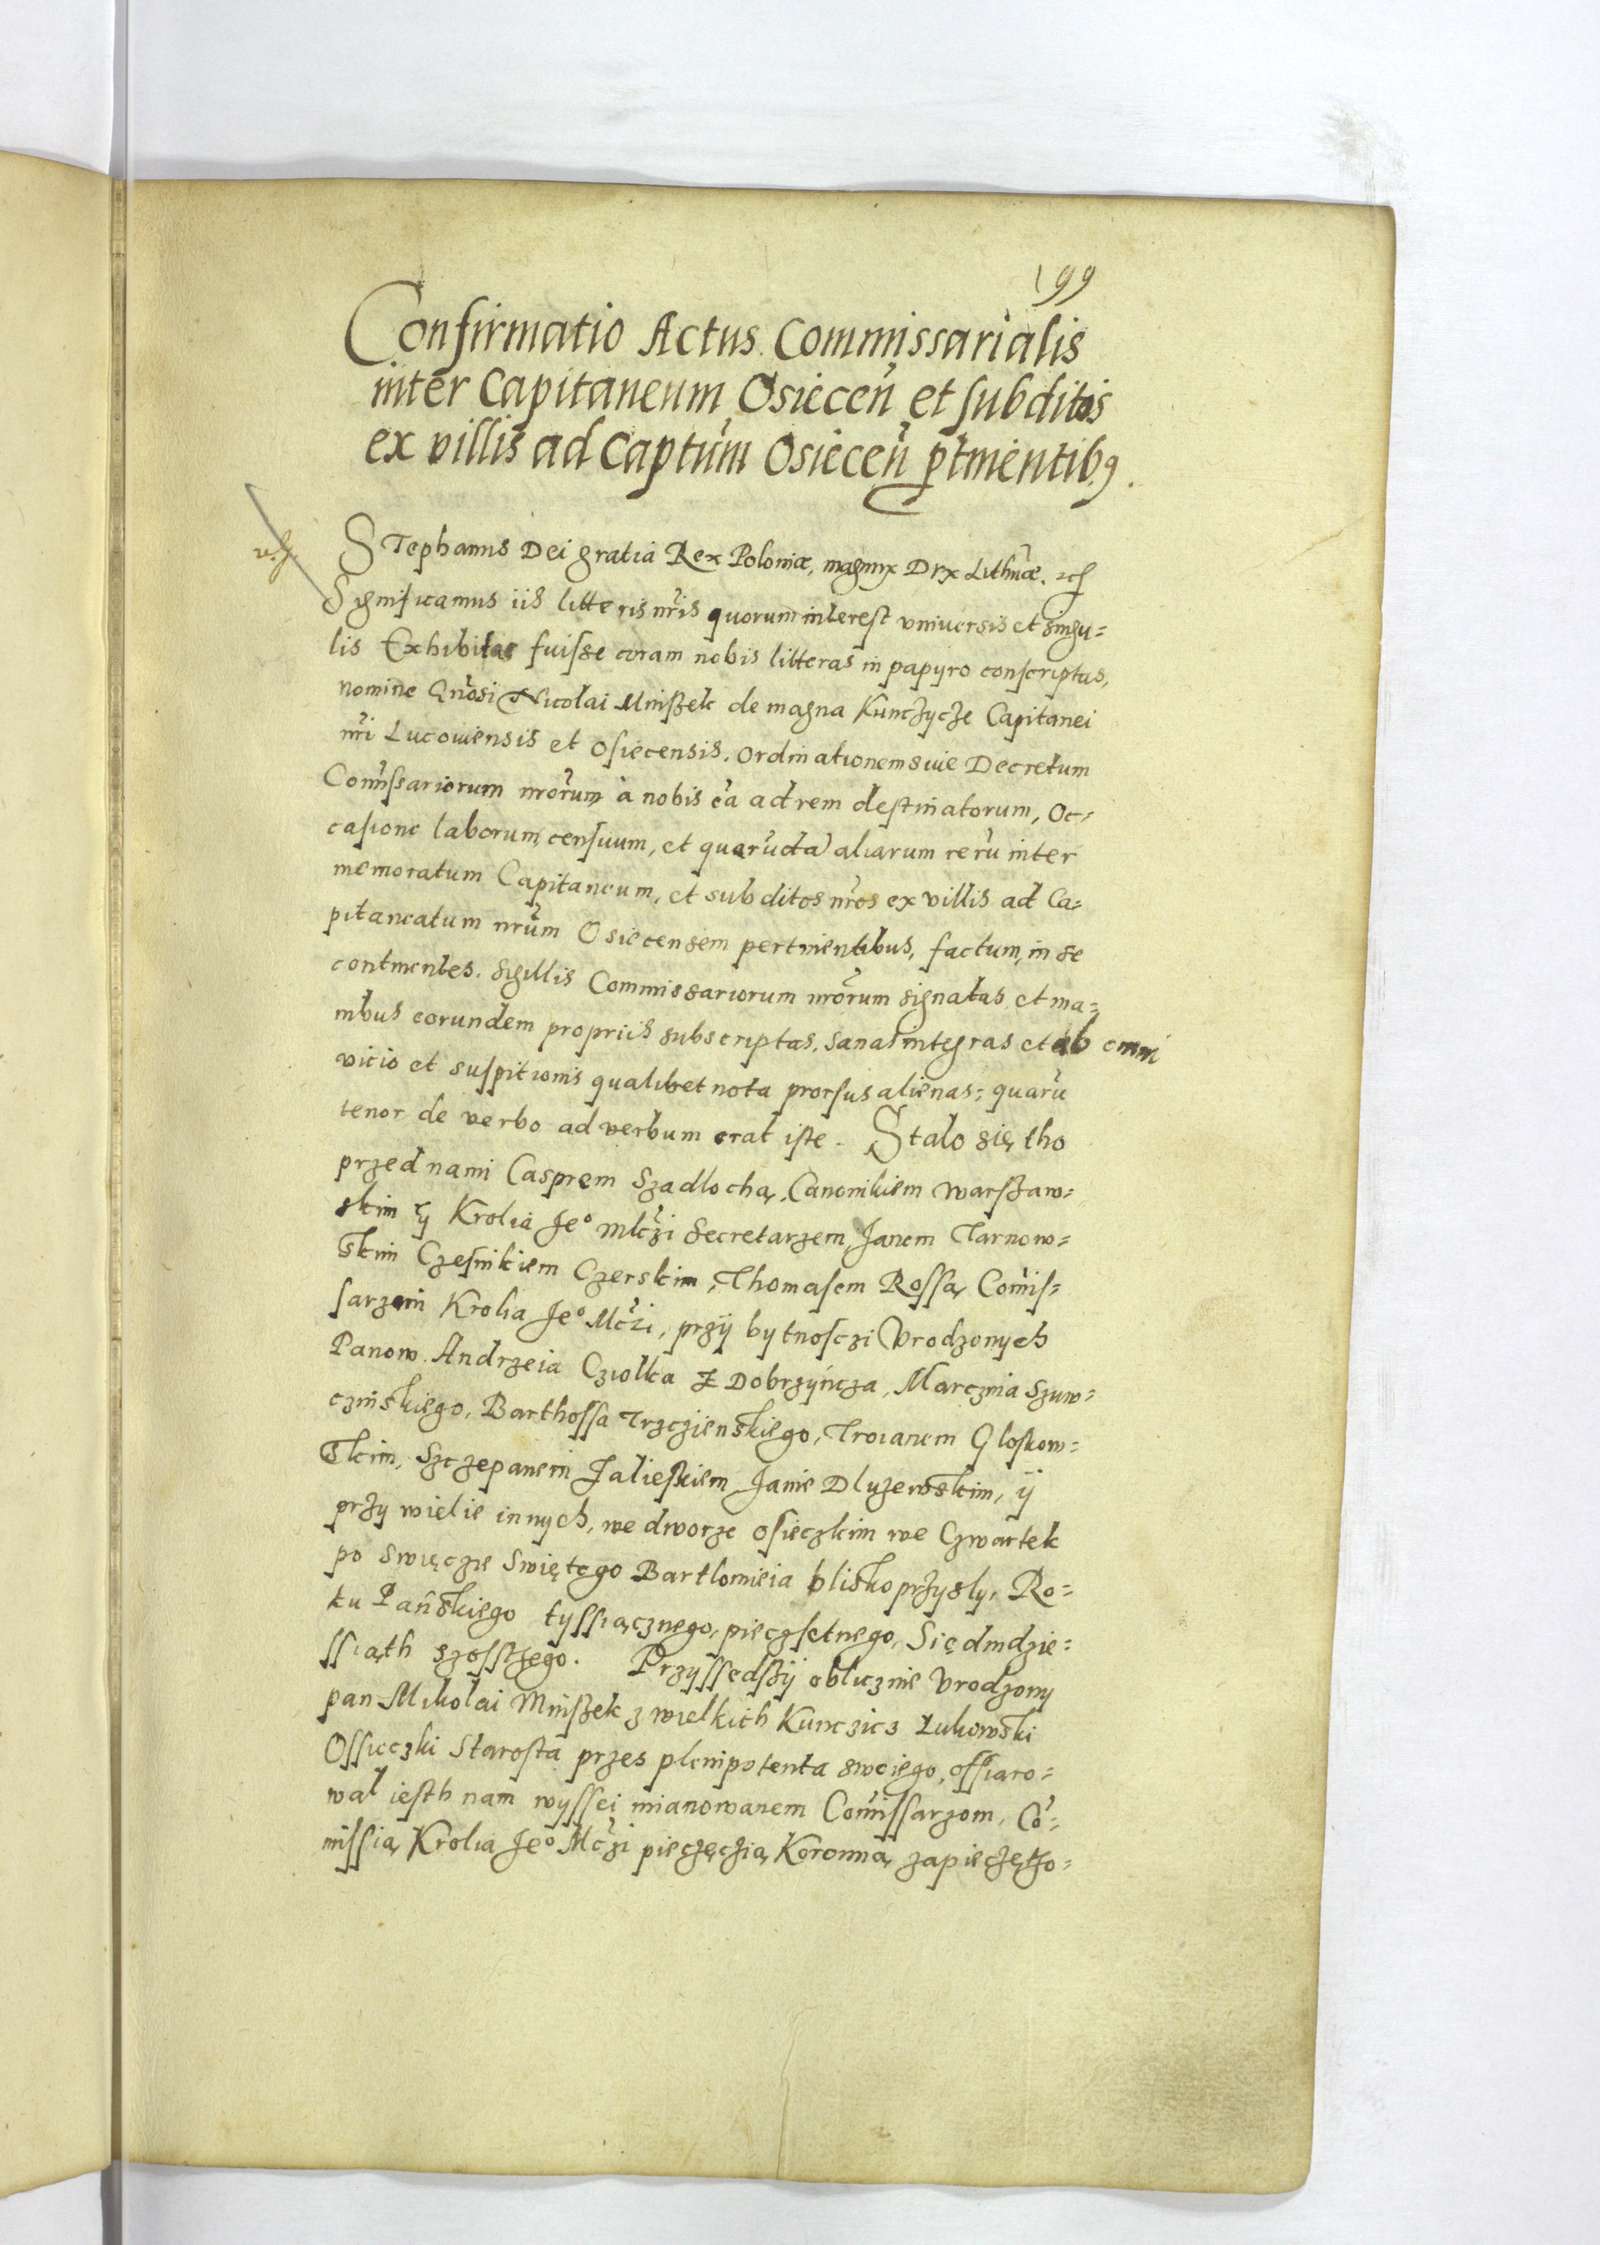 199
Confirmatio Actus Commissarialis
inter Capitaneum Osiecen̄ et subditos
ex villis ad Captūm Osiecen̄ ptinentibꝫ.
STephanus Dei gratia Rex Poloniæ, magnus Dux Lithūæ. ꝛcꝭ
Significamus iis litteris nr̄is quorum interest vniuersis et singu=
lis Exhibitas fuisse coram nobis litteras in papyro conscriptas,
nomine Gn̄osi Nicolai Mniszek de magna Kunczycze Capitanei
nr̄i Lucouiensis et Osiecensis. Ordinationem siue Decretum
Com̄issariorum nr̄orum à nobis eā ad rem destinatorum, Oc=
casione laborum, censuum, et quarūda aliarum rerū inter
memoratum Capitaneum, et subditos nr̄os ex villis ad Ca=
pitaneatum nr̄um Osiecensem pertinentibus, factum, in se
continentes. Sigillis Commissariorum nr̄orum signatas et ma=
nibus eorundem propriis subscriptas, sanas integras et ab omni
vicio et suspitionis qualibet nota prorsus alienas; quarū
tenor de verbo ad verbum erat iste. Stalo się tho
przed nami Casprem Szadlochą, Canonikiem warszaw=
skim ÿ Krolia Jeº mlczi Secretarzem, Janem Tarnow=
skim Czesnikiem Czerskim, Thomasem Rossą, Com̄is=
sarzem Krolia Jeº Mczi, przÿ bytnosczi Vrodzonych
Panow. Andrzeia Cziolka z Dobrzyńcza, Marczina Szuw=
czińskiego, Barthossa Trzczienskiego, Troianem Gloskow=
skim, Szczepanem Zalieskiem Janie Dluzewskim, ÿ
przy wielie innych, we dworze osieczkim we Czwartek
po swięczie Swiętego Bartlomieia blisko przysly, Ro=
ku Pańskiego tyssiącznego, pieczsetnego, Siędmdzie=
ssiąth szosstego. Przyssedszÿ oblicznie Vrodzony
pan Mikolai Mniszek z wielkich Kunczicz Łukowski
Ossieczki Starosta przes plenipotenta swoiego, offiaro=
wal iesth nam wyssei mianowanem Com̄issarzom, Cō=
missią Krolia Jeº Mczi pieczęczią Koronną zapieczętho=